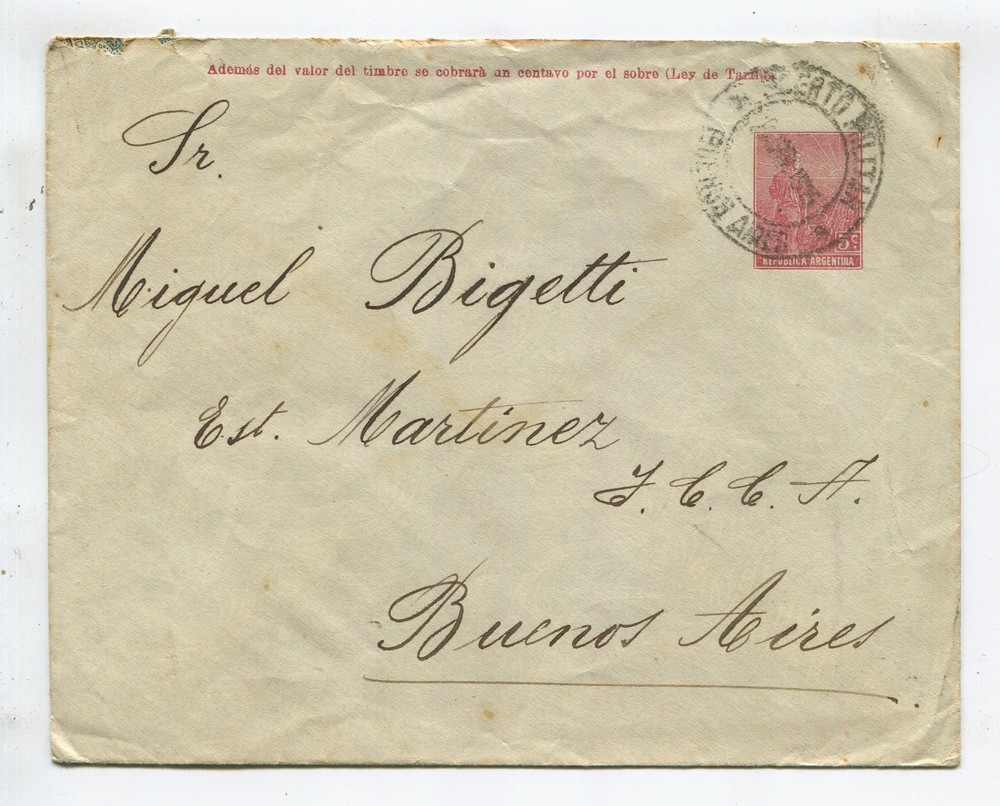 Además del valor del timbre se cobrarà un centavo por el sobre (Ley de Tarifas
PUERTO MILITAR
BUENOS AIRES
5c
REPUBLICA ARGENTINA
Sr.
Miguel Bigetti
Est. Martinez
F. C. C. A.
Buenos Aires